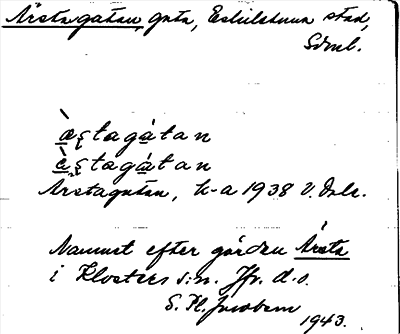 Årstagatan, gata, Eskilstuna stad,
Sdml.
àstagátan
ὲstagátan
Årstagatan, h-a 1938 V. Dal.
Namnet efter gården Årsta
i Klosters s:n. Jfr. d.o.
S. Pl. Jacobsson
1943.